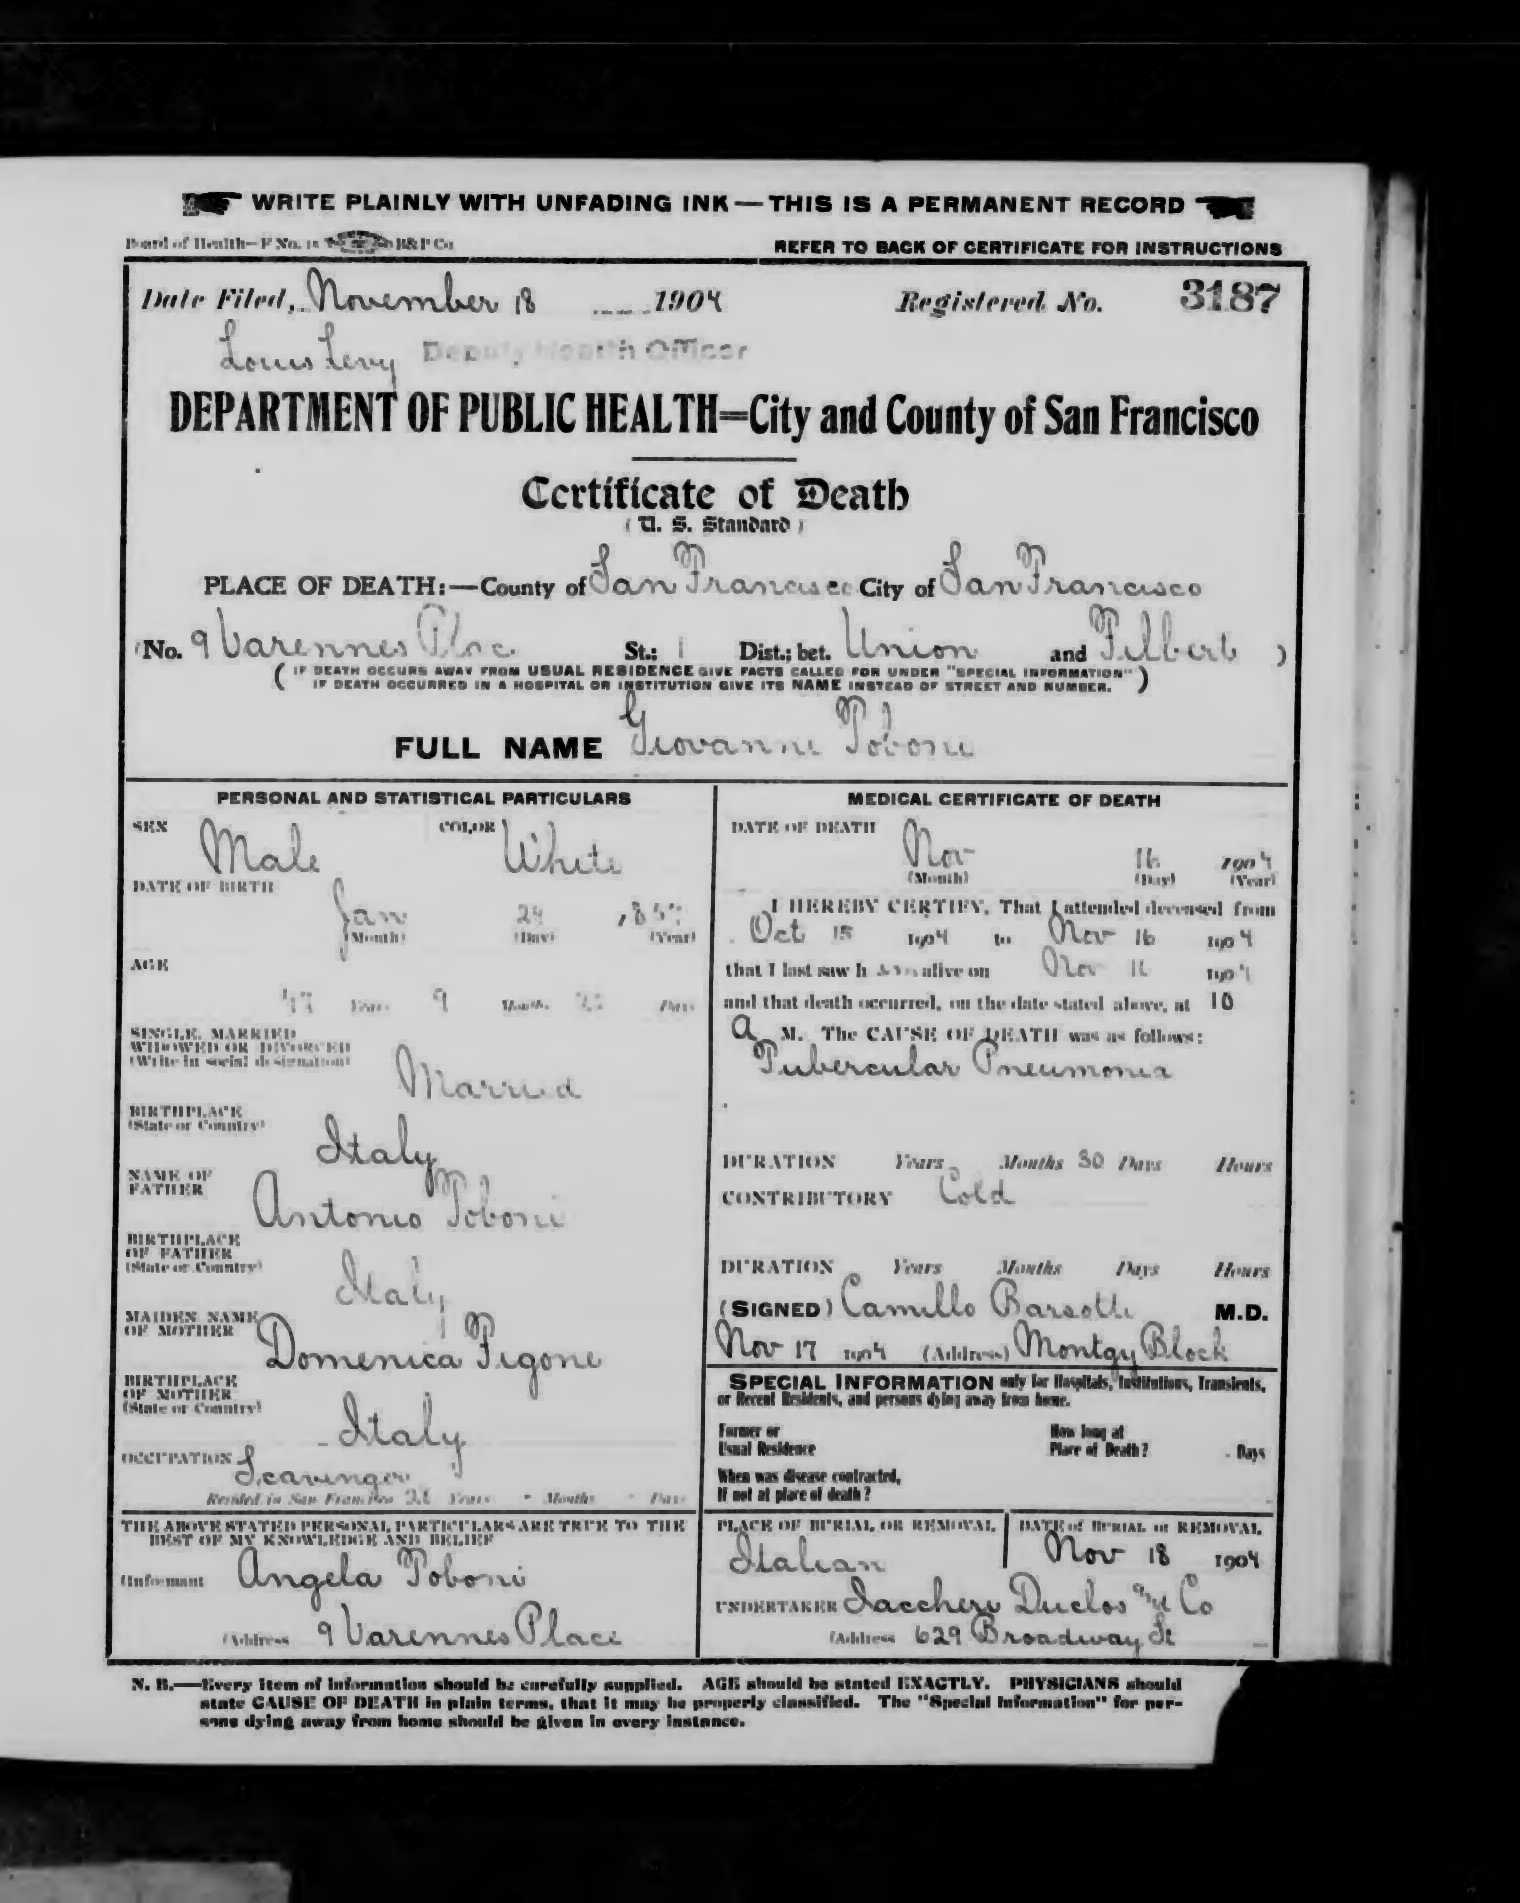 WRITE PLAINLY WITH UNFADING INK — THIS IS A PERMANENT RECORD
Board of Health—F No. B&P Co
REFER TO BACK OF CERTIFICATE FOR INSTRUCTIONS
Date Filed, November 18 1904 Registered No. 3187
Louis Levy Deputy Health Officer
DEPARTMENT OF PUBLIC HEALTH=City and County of San Francisco
Certificate of Death
(U. S. Standard)
PLACE OF DEATH:—County of San Francisco City of San Francisco
(No. 9 Varennes Plac St.; 1 Dist.; bet. Union and Filbert )
( IF DEATH OCCURS AWAY FROM USUAL RESIDENCE GIVE FACTS CALLED FOR UNDER "SPECIAL INFORMATION"
IF DEATH OCCURRED IN A HOSPITAL OR INSTITUTION GIVE ITS NAME INSTEAD OF STREET AND NUMBER. )
FULL NAME Giovanni Toboni
PERSONAL AND STATISTICAL PARTICULARS
SEX Male COLOR White
DATE OF BIRTH
Jan 24 1857
(Month) (Day) (Year)
AGE
47 Years 9 Months Days
SINGLE, MARRIED
WIDOWED OR DIVORCED
(Write in social designation)
Married
BIRTHPLACE
(State or Country)
Italy
NAME OF
FATHER
Antonio Toboni
BIRTHPLACE
OF FATHER
(State or Country)
Italy
MAIDEN NAME
OF MOTHER
Domenica Figone
BIRTHPLACE
OF MOTHER
(State or Country)
Italy
OCCUPATION Scavinger
Resided in San Francisco Years - Months - Days
THE ABOVE STATED PERSONAL PARTICULARS ARE TRUE TO THE
BEST OF MY KNOWLEDGE AND BELIEF
(Informant Angela Toboni
(Address 9 Varennes Place
MEDICAL CERTIFICATE OF DEATH
DATE OF DEATH
Nov 16 1904
(Month) (Day) (Year)
I HEREBY CERTIFY, That I attended deceased from
Oct 15 1904 to Nov 16 1904
that I last saw h im alive on Nov 1904
and that death occurred, on the date stated above, at 10
a M. The CAUSE OF DEATH was as follows:
Tubercular Pneumonia
DURATION Years Months 30 Days Hours
CONTRIBUTORY Cold
DURATION Years Months Days Hours
(SIGNED) Camillo Barsotti M.D.
Nov 17 1904 (Address) Montgy Block
SPECIAL INFORMATION only for Hospitals, Institutions, Transients,
or Recent Residents, and persons dying away from home.
Former or
Usual Residence
How long at
Place of Death? Days
When was disease contracted,
If not at place of death?
PLACE OF BURIAL OR REMOVAL
Italian
DATE of BURIAL or REMOVAL
Nov 18 1904
UNDERTAKER Iaccheri Duclos and Co
(Address 629 Broadway St
N. B.—Every item of information should be carefully supplied. AGE should be stated EXACTLY. PHYSICIANS should
state CAUSE OF DEATH in plain terms, that it may be properly classified. The "Special Information" for per-
sons dying away from home should be given in every instance.